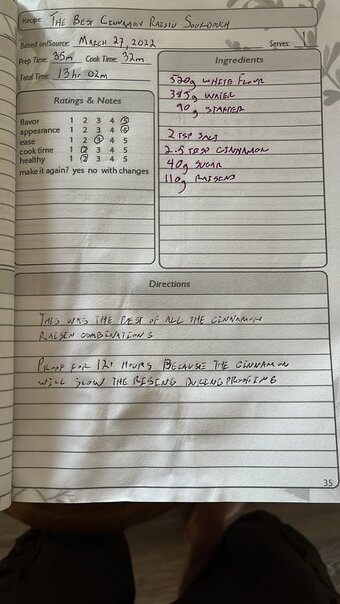 Recipe: The Best Cinnamon Raisin Sourdough
Based on/Source: March 27, 2022 Serves: 1
Prep Time: 35m Cook Time: 32m
Total Time: 13hr 02m
Ratings & Notes
flavor 1 2 3 4 5
appearance 1 2 3 4 5
ease 1 2 3 4 5
cook time 1 2 3 4 5
healthy 1 2 3 4 5
make it again? yes no with changes
Ingredients
520g White Flour
385g Water
90g Starter
2 tsp Salt
2.5 tbsp Cinnamon
40g Sugar
110g Raisins
Directions
This was the best of all the cinnamon
raisin combinations
Proof for 12+ hours because the cinnamon
will slow the rising during proofing
35